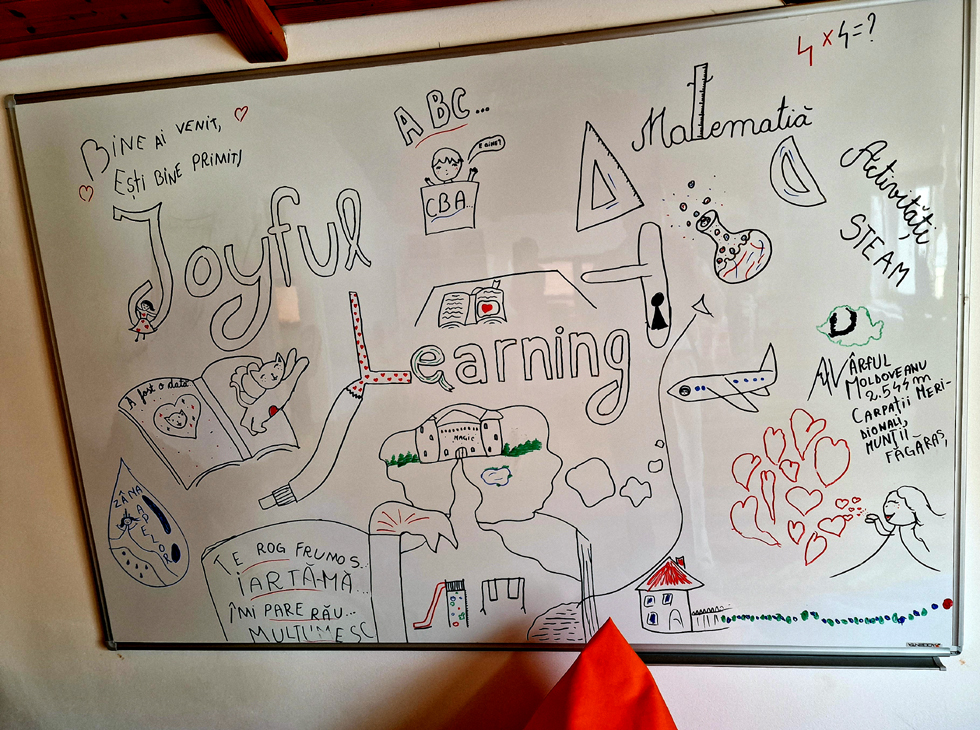 4 x 4 = ?
BINE AI VENIT,
EȘTI BINE PRIMIT,
ABC...
E BINE?
CBA...
Matematiă
Activități
STEAM
Joyful
Learning
A fost o dată
ZÂNA
APELOR
MAGIC
VÂRFUL
MOLDOVEANU
2.544 m
CARPAȚII MERI-
DIONALI,
MUNȚII
FĂGĂRAȘ,
TE ROG FRUMOS..
IARTĂ-MĂ...
ÎMI PARE RĂU...
MULȚUMESC